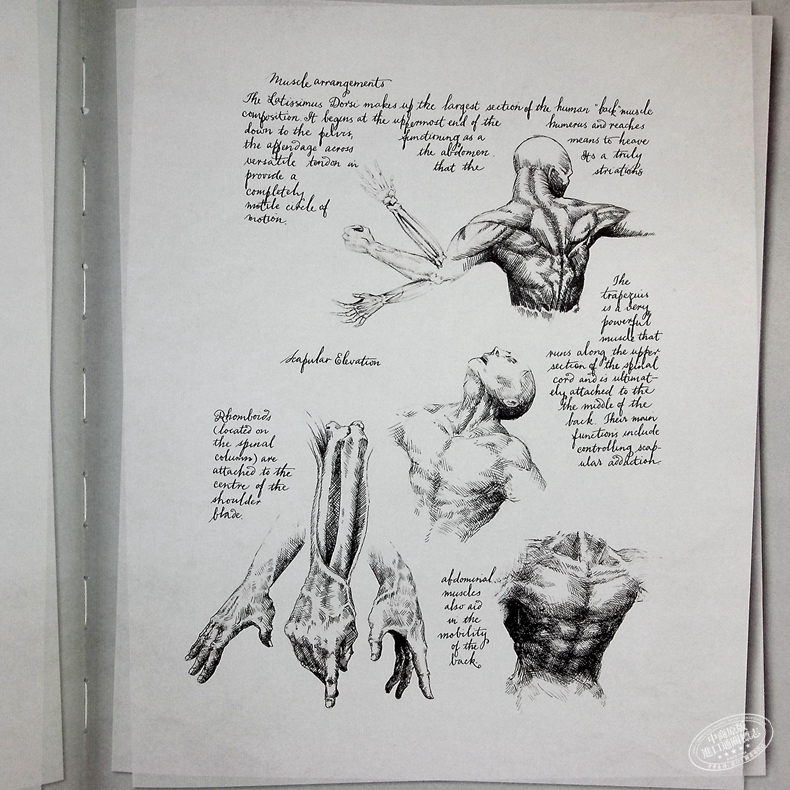 Muscle arrangements
The Latissimus Dorsi makes up the largest section of the human "back" muscle
composition It begins at the uppermost end of the humerus and reaches
down to the pelvis, functioning as a means to heave
the appendage across the abdomen. Its a truly
versatile tendon in that the striations
provide a
completely
motile circle of
motion.
The
trapezius
is a very
powerful
muscle that
runs along the upper
section of the spinal
cord and is ultimat-
ely attached to the
the middle of the
back. Their main
functions include
controlling scap-
ular adduction.
Scapular Elevation
Rhomboids
(located on
the spinal
column) are
attached to the
centre of the
shoulder
blade.
abdominal
muscles
also aid
in the
mobility
of the
back.